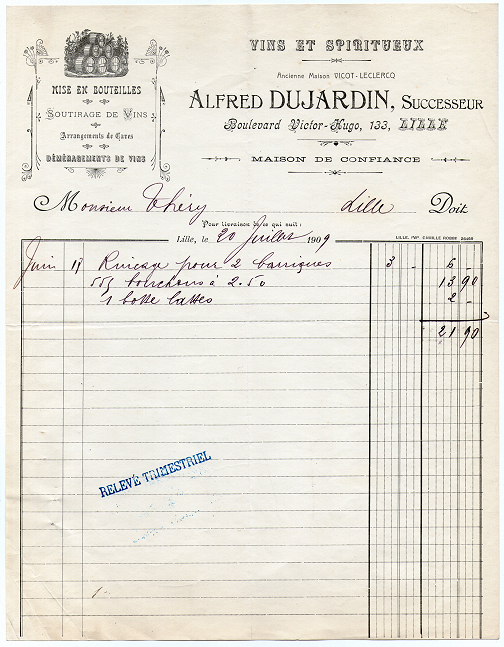 VINS ET SPIRITUEUX
Ancienne Maison VICOT-LECLERCQ
ALFRED DUJARDIN, SUCCESSEUR
Boulevard Victor-Hugo, 133, LILLE
MAISON DE CONFIANCE
MISE EN BOUTEILLES
SOUTIRAGE DE VINS
Arrangements de Caves
DÉMÉNAGEMENTS DE VINS
Monsieur Théry Lille Doit
Pour livraison de ce qui suit:
Lille, le 20 Juillet 1909
LILLE, IMP. CAMILLE ROBBE
Juin 17 Rinçage pour 2 barriques 3 - 6 -
555 bouchons à 2.50 13 90
1 botte lattes 2 -
21 90
RELEVÉ TRIMESTRIEL